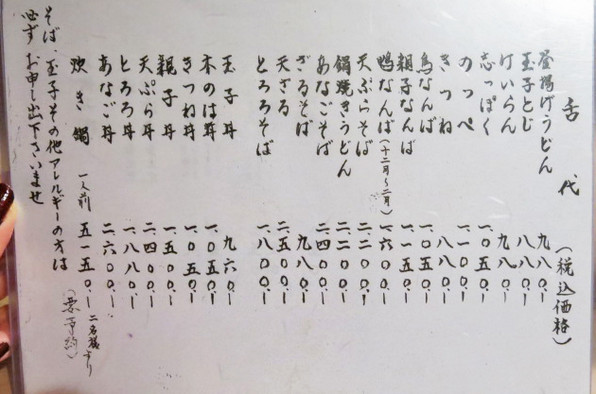 舌代 (税込価格)
釜揚げうどん 九八〇.ー
玉子とじ 八八〇.ー
けいらん 九八〇.ー
志っぽく 一、〇五〇.ー
のっぺ 一、一〇〇.ー
きつね 八八〇.ー
鳥なんば 一、〇五〇.ー
親子なんば 一、一五〇.ー
鴨なんば(十二月〜二月) 一、六〇〇.ー
天ぷらそば 二、二〇〇.ー
鍋焼きうどん 二、二〇〇.ー
あなごそば 二、四〇〇.ー
ざるそば 九八〇.ー
天ざる 二、五〇〇.ー
とろろそば 一、八〇〇.ー
玉子丼 九六〇.ー
木のは丼 一、〇五〇.ー
きつね丼 一、〇五〇.ー
親子丼 一、五〇〇.ー
天ぷら丼 二、四〇〇.ー
とろろ丼 一、八八〇.ー
あなご丼 二、六〇〇.ー
炊き鍋 一人前 五一五〇.ー 二名様より
(要予約)
そば、玉子その他アレルギーの方は
必ずお申し出下さいませ